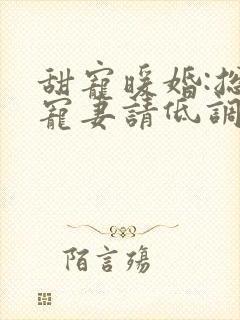 甜寵暖婚:總
寵妻請低調
陌言殤